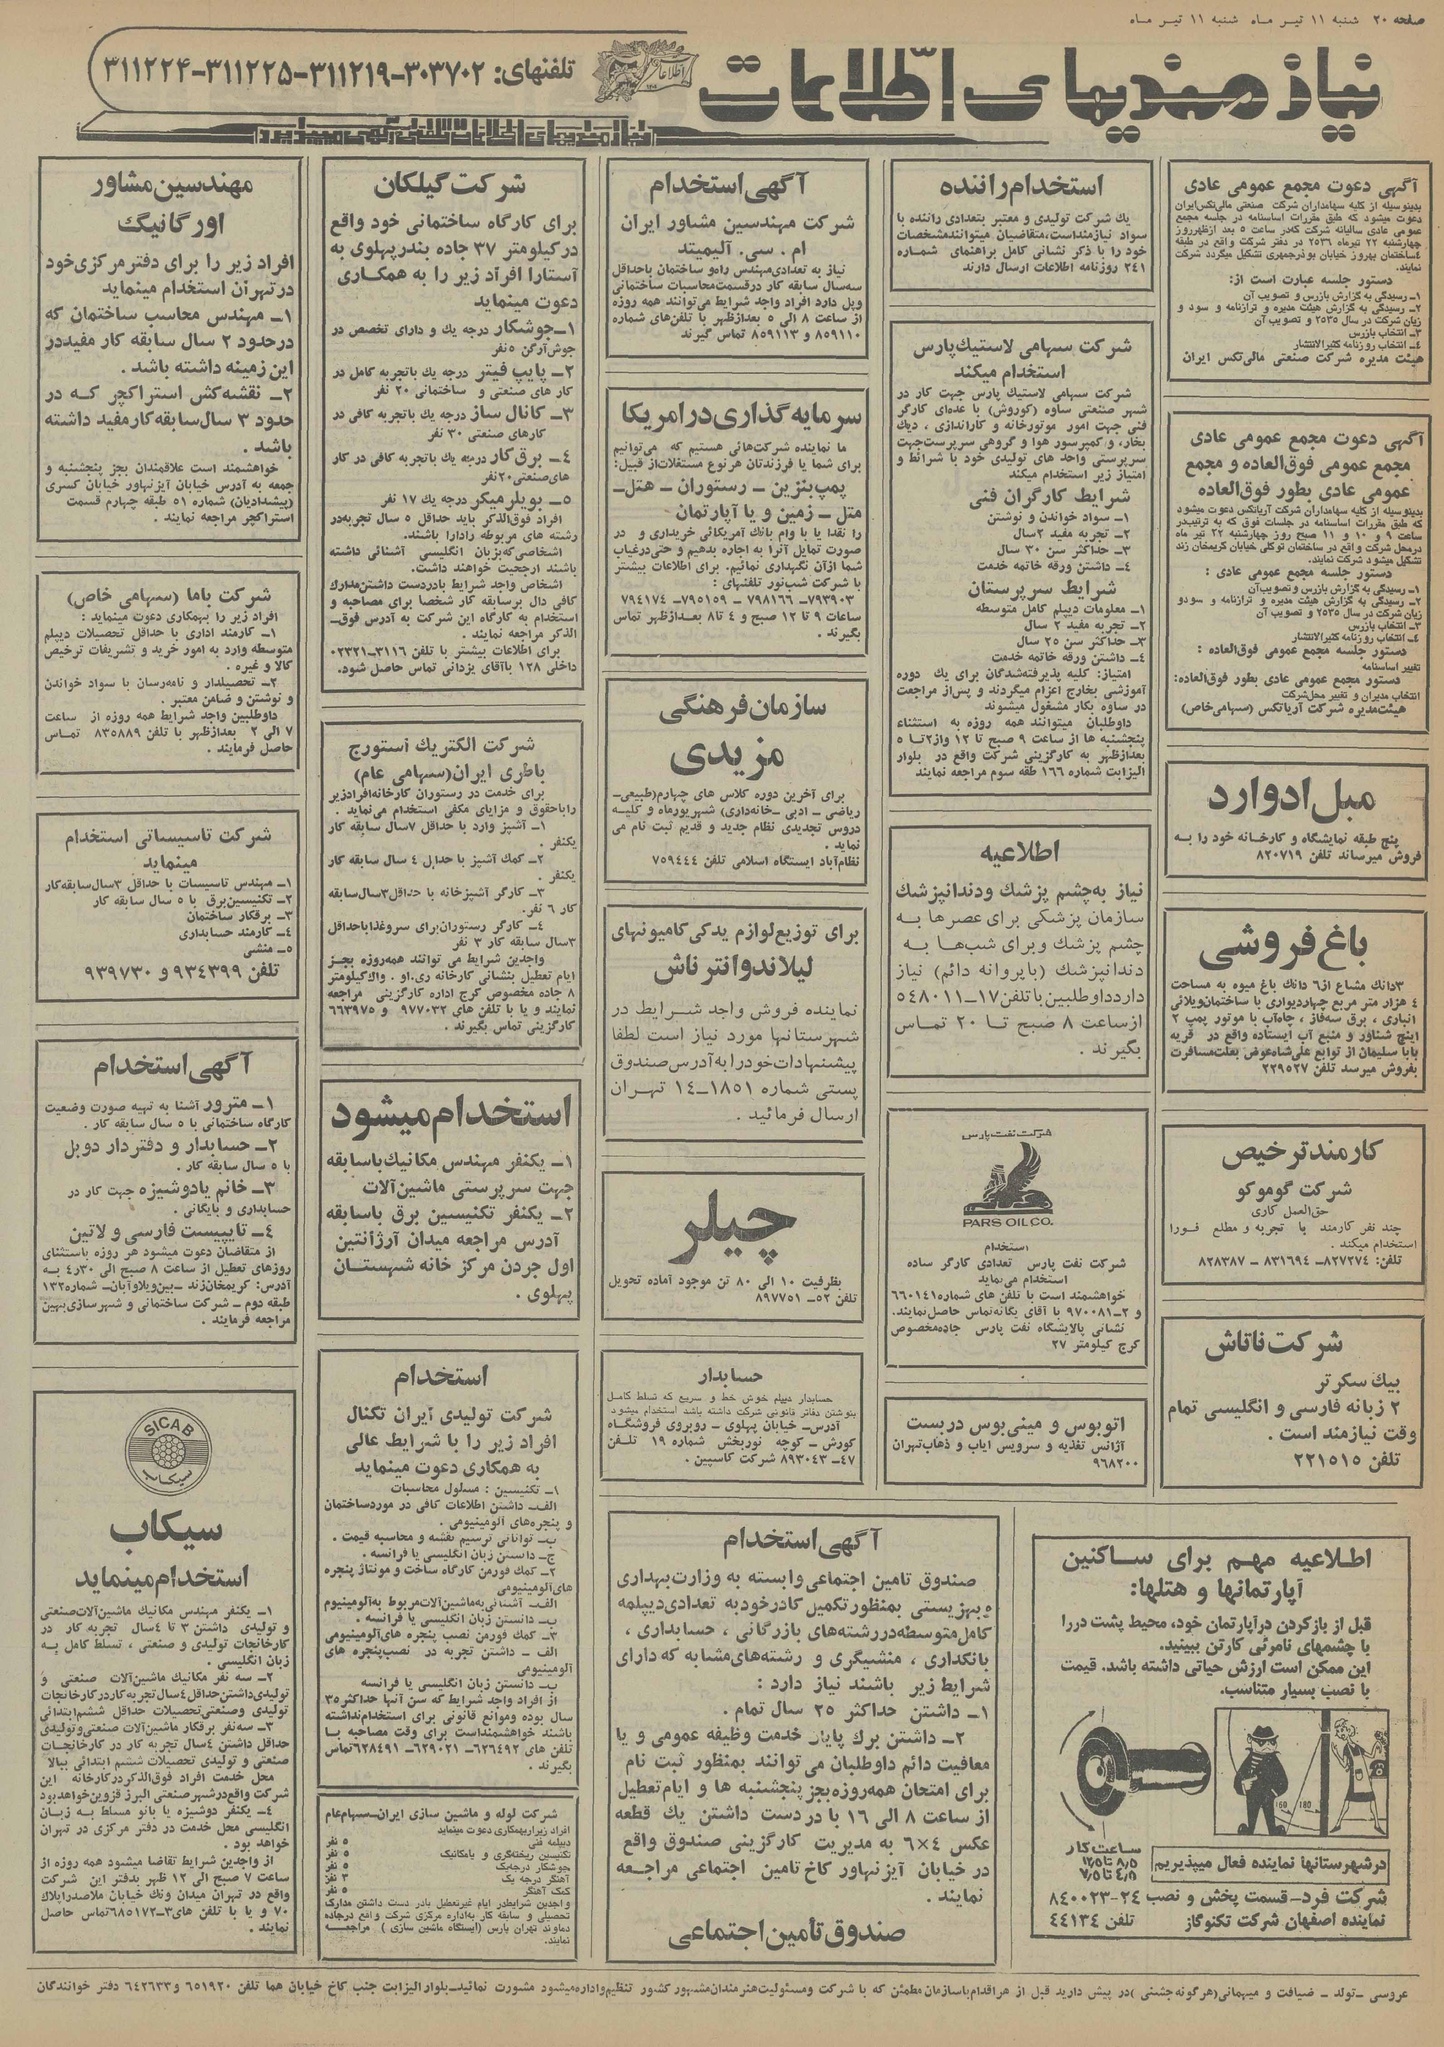 صفحه ۲۰ شنبه ۱۱ تیر ماه شنبه ۱۱ تیر ماه
نیازمندیهای اطلاعات
تلفنهای: ۳۰۳۷۰۲-۳۱۱۲۱۹-۳۱۱۲۲۵-۳۱۱۲۲۴
نیازمندیهای اطلاعات تلفنی آگهی میپذیرد
آگهی دعوت مجمع عمومی عادی
بدینوسیله از کلیه سهامداران شرکت صنعتی مالی‌تکس‌ایران
دعوت میشود که طبق مقررات اساسنامه در جلسه مجمع
عمومی عادی سالیانه شرکت که‌در ساعت ۵ بعد ازظهر روز
چهارشنبه ۲۲ تیرماه ۲۵۳۶ در دفتر شرکت واقع در طبقه
۴ساختمان بهروز خیابان بوذرجمهری تشکیل میگردد شرکت
نمایند.
دستور جلسه عبارت است از:
۱ـ رسیدگی به گزارش بازرس و تصویب آن
۲ـ رسیدگی به گزارش هیئت مدیره و ترازنامه و سود و
زیان شرکت در سال ۲۵۳۵ و تصویب آن
۳ـ انتخاب بازرس
۴ـ انتخاب روزنامه کثیرالانتشار
هیئت مدیره شرکت صنعتی مالی‌تکس ایران
آگهی دعوت مجمع عمومی عادی
مجمع عمومی فوق‌العاده و مجمع
عمومی عادی بطور فوق‌العاده
بدینوسیله از کلیه سهامداران شرکت آریاتکس دعوت میشود
که طبق مقررات اساسنامه در جلسات فوق که به ترتیب‌در
ساعت ۹ و ۱۰ و ۱۱ صبح روز چهارشنبه ۲۲ تیر ماه
درمحل شرکت واقع در ساختمان توکلی خیابان کریمخان زند
تشکیل میشود شرکت نمایند.
دستور جلسه مجمع عمومی عادی :
۱ـ رسیدگی به گزارش بازرس و تصویب آن
۲ـ رسیدگی به گزارش هیئت مدیره و ترازنامه و سودو
زیان شرکت در سال ۲۵۳۵ و تصویب آن
۳ـ انتخاب بازرس
۴ـ انتخاب روزنامه کثیرالانتشار
دستور جلسه مجمع عمومی فوق‌العاده :
تغییر اساسنامه
دستور مجمع عمومی عادی بطور فوق‌العاده:
انتخاب مدیران و تغییر محل‌شرکت
هیئت‌مدیره شرکت آریاتکس (سهامی‌خاص)
مبل ادوارد
پنج طبقه نمایشگاه و کارخانه خود را به
فروش میرساند تلفن ۸۲۰۷۱۹
باغ‌فروشی
۳دانگ مشاع از۶ دانگ باغ میوه به مساحت
۴ هزار متر مربع چهاردیواری با ساختمان‌ویلائی
انباری ، برق سه‌فاز ، چاه‌آب با موتور پمپ ۲
اینچ شناور و منبع آب ایستاده واقع در قریه
بابا سلیمان از توابع علی‌شاه‌عوض بعلت‌مسافرت
بفروش میرسد تلفن ۲۲۹۵۲۷
کارمند ترخیص
شرکت گوموکو
حق‌العمل کاری
چند نفر کارمند با تجربه و مطلع فورا
استخدام میکند .
تلفن: ۸۲۷۲۷۴ـ ۸۳۱۶۹۴ ـ ۸۲۸۳۸۷
شرکت ناتاش
بیک سکرتر
۲ زبانه فارسی و انگلیسی تمام
وقت نیازمند است .
تلفن ۲۲۱۵۱۵
استخدام راننده
یک شرکت تولیدی و معتبر بتعدادی راننده با
سواد نیازمنداست،متقاضیان میتوانندمشخصات
خود را با ذکر نشانی کامل براهنمای شماره
۲۴۱ روزنامه اطلاعات ارسال دارند
شرکت سهامی لاستیک پارس
استخدام میکند
شرکت سهامی لاستیک پارس جهت کار در
شهر صنعتی ساوه (کوروش) با عده‌ای کارگر
فنی جهت امور موتورخانه و کاراندازی ، دیگ
بخار، و کمپرسور هوا و گروهی سرپرست‌جهت
سرپرستی واحد های تولیدی خود با شرائط و
امتیاز زیر استخدام میکند
شرایط کارگران فنی
۱ـ سواد خواندن و نوشتن
۲ـ تجربه مفید ۲سال
۳ـ حداکثر سن ۳۰ سال
۴ـ داشتن ورقه خاتمه خدمت
شرایط سرپرستان
۱ـ معلومات دیپلم کامل متوسطه
۲ـ تجربه مفید ۲ سال
۳ـ حداکثر سن ۲۵ سال
۴ـ داشتن ورقه خاتمه خدمت
امتیاز: کلیه پذیرفته‌شدگان برای یک دوره
آموزشی بخارج اعزام میگردند و پس‌از مراجعت
در ساوه بکار مشغول میشوند
داوطلبان میتوانند همه روزه به استثناء
پنجشنبه ها از ساعت ۹ صبح تا ۱۲ و از۲تا ۵
بعدازظهر به کارگزینی شرکت واقع در بلوار
الیزابت شماره ۱۶۶ طقه سوم مراجعه نمایند
اطلاعیه
نیاز به‌چشم پزشک ودندانپزشک
سازمان پزشکی برای عصرها به
چشم پزشک وبرای شب‌ها به
دندانپزشک (باپروانه دائم) نیاز
دارد داوطلبین با تلفن۱۷ـ۵۴۸۰۱۱
از ساعت ۸ صبح تا ۲۰ تماس
بگیرند .
شرکت نفت پارس
PARS OIL CO.
استخدام
شرکت نفت پارس تعدادی کارگر ساده
استخدام می‌نماید
خواهشمند است با تلفن های شماره۶۶۰۱۴۱
و ۲ـ۹۷۰۰۸۱ با آقای یگانه‌تماس حاصل‌نمایند.
نشانی پالایشگاه نفت پارس جاده‌مخصوص
کرج کیلومتر ۲۷
اتوبوس و مینی‌بوس دربست
آژانس تغذیه و سرویس ایاب و ذهاب‌تهران
۹۶۸۲۰۰
اطلاعیه مهم برای ساکنین
آپارتمانها و هتلها:
قبل از بازکردن درآپارتمان خود، محیط پشت دررا
با چشمهای نامرئی کارتن ببینید.
این ممکن است ارزش حیاتی داشته باشد. قیمت
با نصب بسیار متناسب.
160 180
ساعت کار
۸/۵ تا ۱۲/۵
۴/۵ تا ۷/۵
درشهرستانها نماینده فعال میپذیریم
شرکت فرد- قسمت پخش و نصب ۲۴-۸۴۰۰۲۳
نماینده اصفهان شرکت تکنوگاز تلفن ۴۴۱۳۴
آگهی استخدام
شرکت مهندسین مشاور ایران
ام . سی. آلیمیتد
نیاز به تعدادی‌مهندس راه‌و ساختمان باحداقل
سه‌سال سابقه کار درقسمت‌محاسبات ساختمانی
وپل دارد افراد واجد شرایط می‌توانند همه روزه
از ساعت ۸ الی ۵ بعدازظهر با تلفن‌های شماره
۸۵۹۱۱۰ و ۸۵۹۱۱۳ تماس گیرند
سرمایه گذاری در امریکا
ما نماینده شرکت‌هائی هستیم که می‌توانیم
برای شما یا فرزندتان هرنوع مستغلات‌از قبیل:
پمپ‌بنزین ـ رستوران ـ هتل ـ
متل ـ زمین و یا آپارتمان
را نقدا یا با وام بانک آمریکائی خریداری و در
صورت تمایل آنرا به اجاره بدهیم و حتی‌درغیاب
شما ازآن نگهداری نمائیم. برای اطلاعات بیشتر
با شرکت شب‌نور تلفنهای :
۷۹۳۹۰۳ـ ۷۹۸۱۶۶ ـ ۷۹۵۱۵۹ـ ۷۹۴۱۷۴
ساعات ۹ تا ۱۲ صبح و ۴ تا ۸ بعدازظهر تماس
بگیرند .
سازمان فرهنگی
مزیدی
برای آخرین دوره کلاس های چهارم(طبیعی-
ریاضی ـ ادبی ـخانه‌داری) شهریورماه و کلیه
دروس تجدیدی نظام جدید و قدیم ثبت نام می
نماید .
نظام‌آباد ایستگاه اسلامی تلفن ۷۵۹۴۴۴
برای توزیع لوازم یدکی کامیونهای
لیلاند و انترناش
نماینده فروش واجد شرایط در
شهرستانها مورد نیاز است لطفا
پیشنهادات خودرا به‌آدرس‌صندوق
پستی شماره ۱۸۵۱ـ۱۴ تهران
ارسال فرمائید .
چیلر
بظرفیت ۱۰ الی ۸۰ تن موجود آماده تحویل
تلفن ۵۲ـ ۸۹۷۷۵۱
حسابدار
حسابدار دیپلم خوش خط و سریع که تسلط کامل
بنوشتن دفاتر قانونی شرکت داشته باشد استخدام میشود
آدرس- خیابان پهلوی ـ روبروی فروشگاه
کورش ـ کوچه نوربخش شماره ۱۹ تلفن
۴۷ـ ۸۹۳۰۴۳ شرکت کاسپین .
آگهی استخدام
صندوق تامین اجتماعی وابسته به وزارت‌بهداری
و بهزیستی بمنظور تکمیل کادر خود به تعدادی دیپلمه
کامل متوسطه دررشته‌های بازرگانی ، حسابداری ،
بانکداری ، منشیگری و رشته‌های‌مشابه که دارای
شرایط زیر باشند نیاز دارد :
۱ـ داشتن حداکثر ۲۵ سال تمام .
۲ـ داشتن برگ پایان خدمت وظیفه عمومی و یا
معافیت دائم داوطلبان می توانند بمنظور ثبت نام
برای امتحان همه‌روزه بجز پنجشنبه ها و ایام تعطیل
از ساعت ۸ الی ۱۶ با در دست داشتن یک قطعه
عکس ۴×۶ به مدیریت کارگزینی صندوق واقع
در خیابان آیزنهاور کاخ تامین اجتماعی مراجعه
نمایند .
صندوق تأمین اجتماعی
شرکت گیلکان
برای کارگاه ساختمانی خود واقع
در کیلومتر ۳۷ جاده بندرپهلوی به
آستارا افراد زیر را به همکاری
دعوت مینماید
۱ـ جوشکار درجه یک و دارای تخصص در
جوش‌آرگن ۵نفر
۲ـ پایپ فیتر درجه یک باتجربه کامل در
کار های صنعتی و ساختمانی ۲۰ نفر
۳ـ کانال ساز درجه یک باتجربه کافی در
کارهای صنعتی ۳۰ نفر
۴ـ برق‌کار درجه یک باتجربه کافی در کار
های‌صنعتی ۲۰نفر
۵ـ بویلر میکر درجه یک ۱۷ نفر
افراد فوق‌الذکر باید حداقل ۵ سال تجربه‌در
رشته های مربوطه رادارا باشند.
اشخاصی که‌بزبان انگلیسی آشنائی داشته
باشند ارجحیت خواهند داشت.
اشخاص واجد شرایط بادردست داشتن‌مدارک
کافی دال برسابقه کار شخصا برای مصاحبه و
استخدام به کارگاه این شرکت به آدرس فوق-
الذکر مراجعه نمایند .
برای اطلاعات بیشتر با تلفن ۳۱۱۶ـ۰۲۳۲۱
داخلی ۱۲۸ باآقای یزدانی تماس حاصل شود.
شرکت الکتریک استورج
باطری ایران(سهامی عام)
برای خدمت در رستوران کارخانه‌افرادزیر
راباحقوق و مزایای مکفی استخدام می‌نماید .
۱ـ آشپز وارد با حداقل ۷سال سابقه کار
یکنفر .
۲ـ کمک آشپز با حداقل ۴ سال سابقه کار
یکنفر .
۳ـ کارگر آشپزخانه با حداقل۳سال‌سابقه
کار ۶ نفر.
۴ـ کارگر رستوران‌برای سروغذاباحداقل
۳سال سابقه کار ۳ نفر
واجدین شرایط می توانند همه‌روزه بجز
ایام تعطیل بنشانی کارخانه ری.او . واک‌کیلومتر
۸ جاده مخصوص کرج اداره کارگزینی مراجعه
نمایند و یا با تلفن های ۹۷۷۰۳۲ و ۶۶۳۹۷۵
کارگزینی تماس بگیرند .
استخدام میشود
۱ـ یکنفر مهندس مکانیک باسابقه
جهت سرپرستی ماشین‌آلات
۲ـ یکنفر تکنیسین برق باسابقه
آدرس مراجعه میدان آرژانتین
اول جردن مرکز خانه شهستان
پهلوی .
استخدام
شرکت تولیدی ایران تکنال
افراد زیر را با شرایط عالی
به همکاری دعوت مینماید
۱ـ تکنیسین : مسئول محاسبات
الف- داشتن اطلاعات کافی در موردساختمان
و پنجره‌های آلومینیومی .
ب- توانائی ترسیم نقشه و محاسبه قیمت .
ج- دانستن زبان انگلیسی یا فرانسه .
۲ـ کمک فورمن کارگاه ساخت و مونتاژ پنجره
های‌آلومینیومی
الف- آشنائی به‌ماشین‌آلات‌مربوط به‌آلومینیوم
ب- دانستن زبان انگلیسی یا فرانسه .
۳ـ کمک فورمن نصب پنجره های‌آلومینیومی
الف - داشتن تجربه در نصب‌پنجره های
آلومینیومی
ب- دانستن زبان انگلیسی یا فرانسه
از افراد واجد شرایط که سن آنها حداکثر۳۵
سال بوده وموانع قانونی برای استخدام‌نداشته
باشند خواهشمنداست برای وقت مصاحبه با
تلفن های ۶۲۶۴۹۲ـ ۶۲۹۰۲۱ـ ۶۲۸۴۹۱تماس
بگیرند .
شرکت لوله و ماشین سازی ایران-سهام‌عام
افراد زیررابهمکاری دعوت مینماید
دیپلمه فنی ۵ نفر
تکنیسین ریخته‌گری و یامکانیک ۵ نفر
جوشکار درجه‌یک ۵ نفر
آهنگر درجه یک ۳ نفر
کمک آهنگر ۵ نفر
واجدین شرایط‌در ایام غیرتعطیل بادر دست داشتن مدارک
تحصیلی و سابقه کار به‌اداره مرکزی شرکت واقع درجاده
دماوند تهران پارس (ایستگاه ماشین سازی ) مراجعه
نمایند.
مهندسین مشاور
اورگانیک
افراد زیر را برای دفتر مرکزی خود
در تهران استخدام مینماید
۱ـ مهندس محاسب ساختمان که
در حدود ۲ سال سابقه کار مفیددر
این زمینه داشته باشد .
۲ـ نقشه‌کش استراکچر که در
حدود ۳ سال سابقه کار مفید داشته
باشد .
خواهشمند است علاقمندان بجز پنجشنبه و
جمعه به آدرس خیابان آیزنهاور خیابان کسری
(پیشدادیان) شماره ۵۱ طبقه چهارم قسمت
استراکچر مراجعه نمایند .
شرکت باما (سهامی خاص)
افراد زیر را بهمکاری دعوت مینماید :
۱ـ کارمند اداری با حداقل تحصیلات دیپلم
متوسطه وارد به امور خرید و تشریفات ترخیص
کالا و غیره .
۲ـ تحصیلدار و نامه‌رسان با سواد خواندن
و نوشتن و ضامن معتبر .
داوطلبین واجد شرایط همه روزه از ساعت
۷ الی ۲ بعدازظهر با تلفن ۸۳۵۸۸۹ تماس
حاصل فرمایند .
شرکت تاسیساتی استخدام
مینماید
۱ـ مهندس تاسیسات با حداقل ۳سال‌سابقه‌کار
۲ـ تکنیسین‌برق با ۵ سال سابقه کار
۳ـ برقکار ساختمان
۴ـ کارمند حسابداری
۵ـ منشی
تلفن ۹۳۴۳۹۹ و ۹۳۹۷۳۰
آگهی استخدام
۱ـ مترور آشنا به تهیه صورت وضعیت
کارگاه ساختمانی با ۵ سال سابقه کار .
۲ـ حسابدار و دفتردار دوبل
با ۵ سال سابقه کار .
۳ـ خانم یادوشیزه جهت کار در
حسابداری و بایگانی .
۴ـ تایپیست فارسی و لاتین
از متقاضان دعوت میشود هر روزه باستثنای
روزهای تعطیل از ساعت ۸ صبح الی ۴٫۳۰ به
آدرس: کریمخان‌زند ـ بین‌ویلاوآبان- شماره۱۳۲
طبقه دوم - شرکت ساختمانی و شهرسازی‌بهین
مراجعه فرمایند .
SICAB
سیکاب
سیکاب
استخدام مینماید
۱ـ یکنفر مهندس مکانیک ماشین‌آلات‌صنعتی
و تولیدی داشتن ۳ تا ۴سال تجربه کار در
کارخانجات تولیدی و صنعتی ، تسلط کامل به
زبان انگلیسی .
۲ـ سه نفر مکانیک ماشین‌آلات صنعتی و
تولیدی‌داشتن‌حداقل ۴سال تجربه‌کاردرکارخانجات
تولیدی وصنعتی‌تحصیلات حداقل ششم‌ابتدائی
۳ـ سه‌نفر برقکار ماشین‌آلات صنعتی‌وتولیدی
حداقل داشتن ۴سال تجربه کار در کارخانجات
صنعتی و تولیدی تحصیلات ششم ابتدائی ببالا
محل خدمت افراد فوق‌الذکردرکارخانه این
شرکت واقع‌درشهرصنعتی البرز قزوین‌خواهدبود
۴ـ یکنفر دوشیزه یا بانو مسلط به زبان
انگلیسی محل خدمت در دفتر مرکزی در تهران
خواهد بود .
از واجدین شرایط تقاضا میشود همه روزه از
ساعت ۷ صبح الی ۱۲ ظهر بدفتر این شرکت
واقع در تهران میدان ونک خیابان ملاصدراپلاک
۷۰ و یا با تلفن های۳ـ۶۸۵۱۷۲تماس حاصل
نمایند .
عروسی ـتولد ـ ضیافت و میهمانی(هرگونه‌جشنی )در پیش دارید قبل از هراقدام‌باسازمان مطمئن که با شرکت ومسئولیت‌هنرمندان‌مشهور کشور تنظیم‌واداره‌میشود مشورت نمائید-بلوار الیزابت جنب کاخ خیابان هما تلفن ۶۵۱۹۲۰ و۶۴۲۶۳۳ دفتر خوانندگان